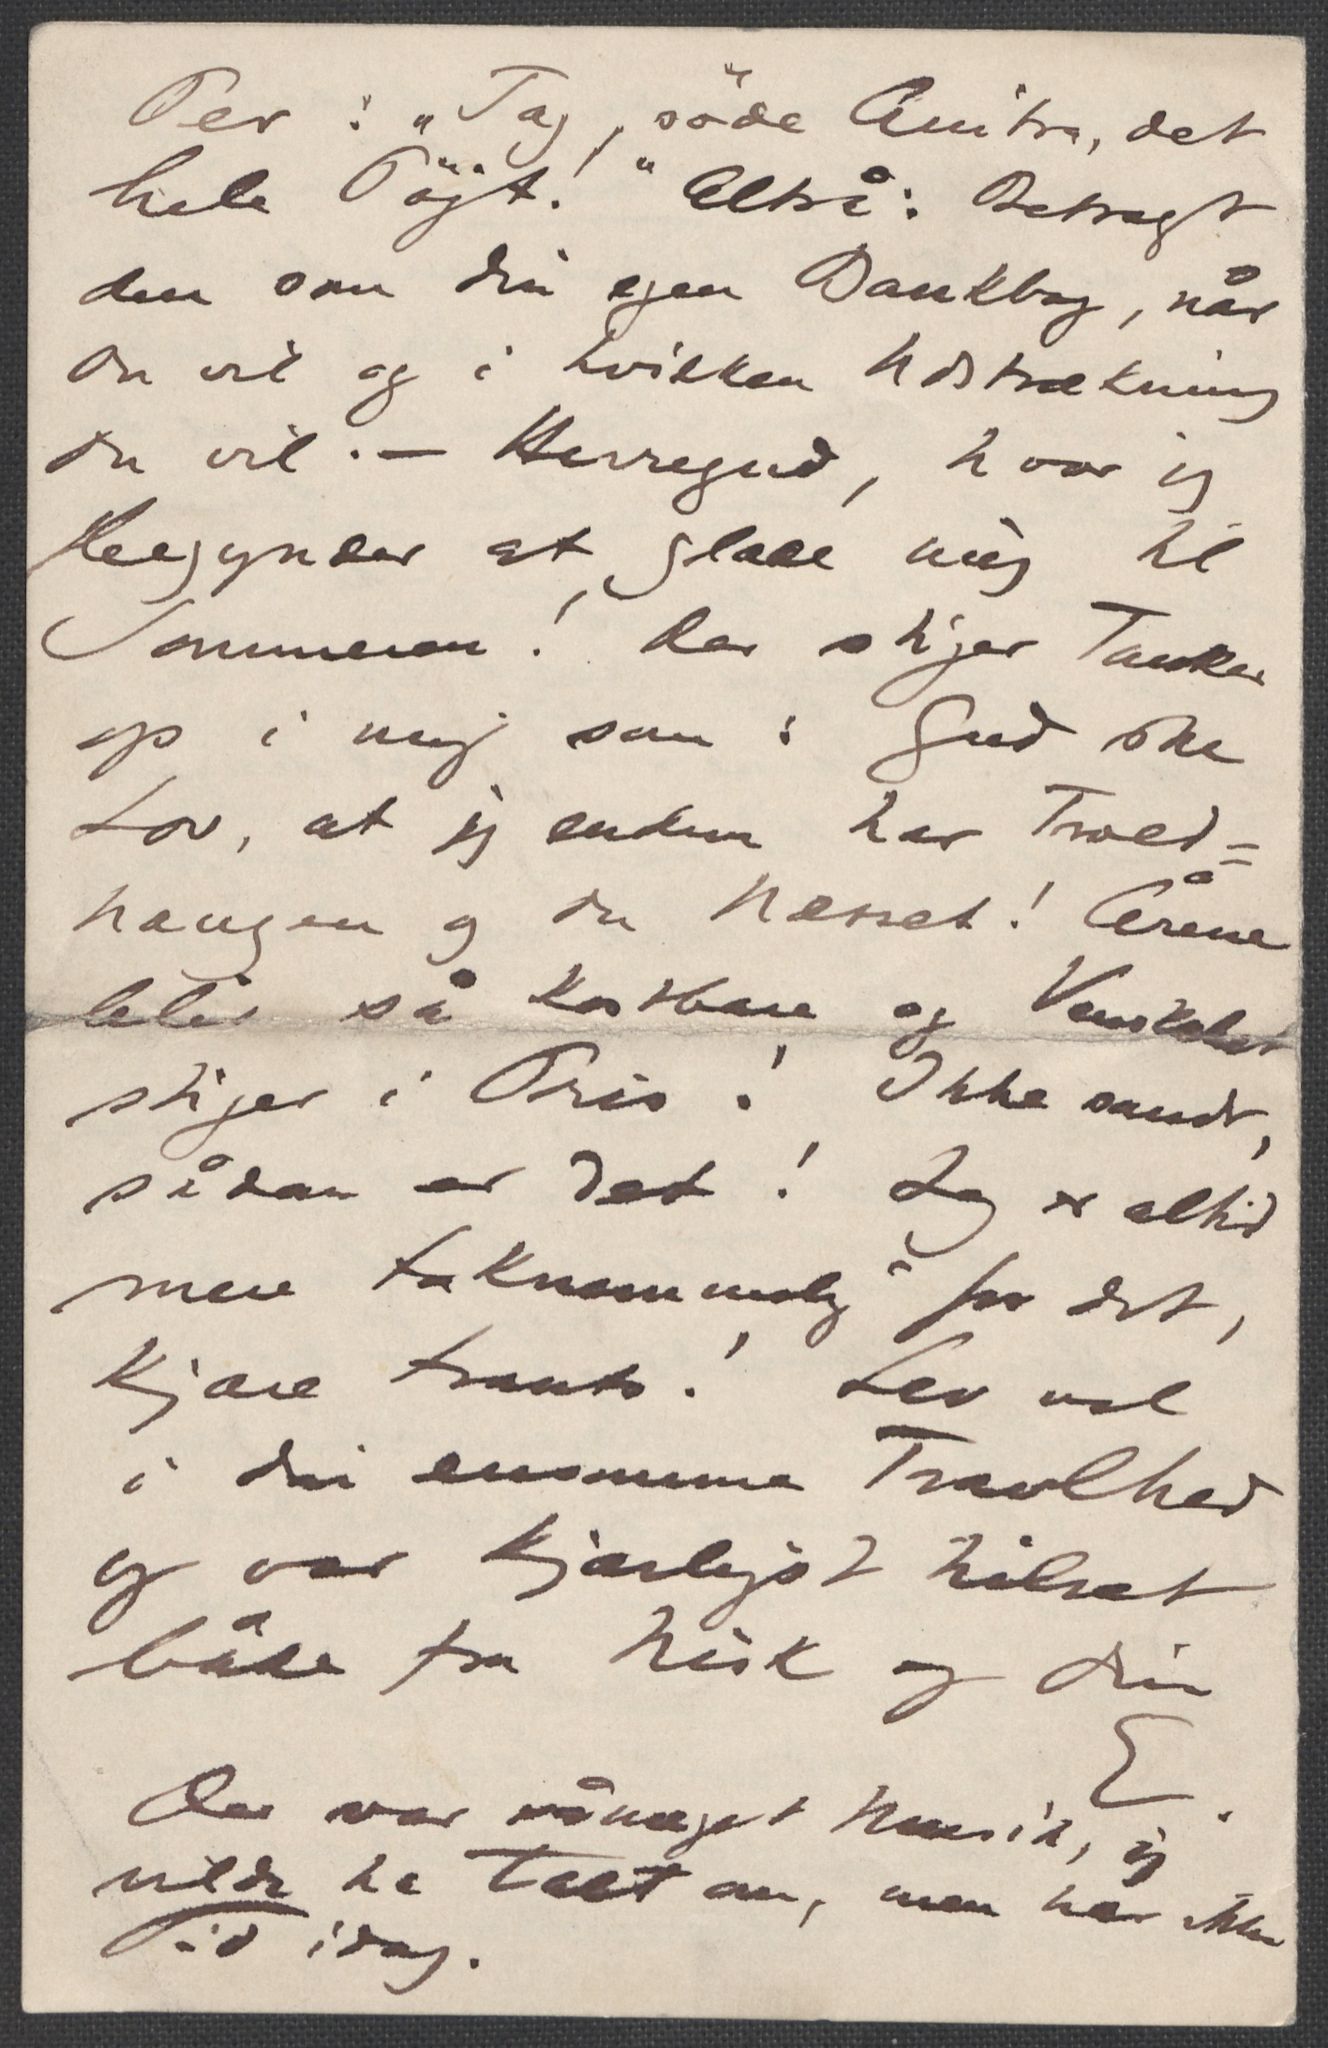 Per: „Tag, söde Anitra, det
hele Töjt!“ Altså: Betragt
den som din egen Bankbog, når
du vil og i hvilken Udstrækning
du vil. – Herregud, hvor jeg
begynder at glæde mig til
Sommeren! Der stiger Tanker
op i mig som: Gud ske
Lov, at jeg endnu har Trold=
haugen og du Næsset! Årene
blir så kostbare og Venskabet
stiger i Pris! Ikke sandt,
sådan er det! Jeg er altid
mere taknemmelig for det,
kjære Frants! Lev vel
i din ensomme Travlhed
og vær kjærligst hilset
både fra Nisk og din
E.
Der var så meget Musik, jeg
vilde ha talt om, men har ikke
Tid idag.